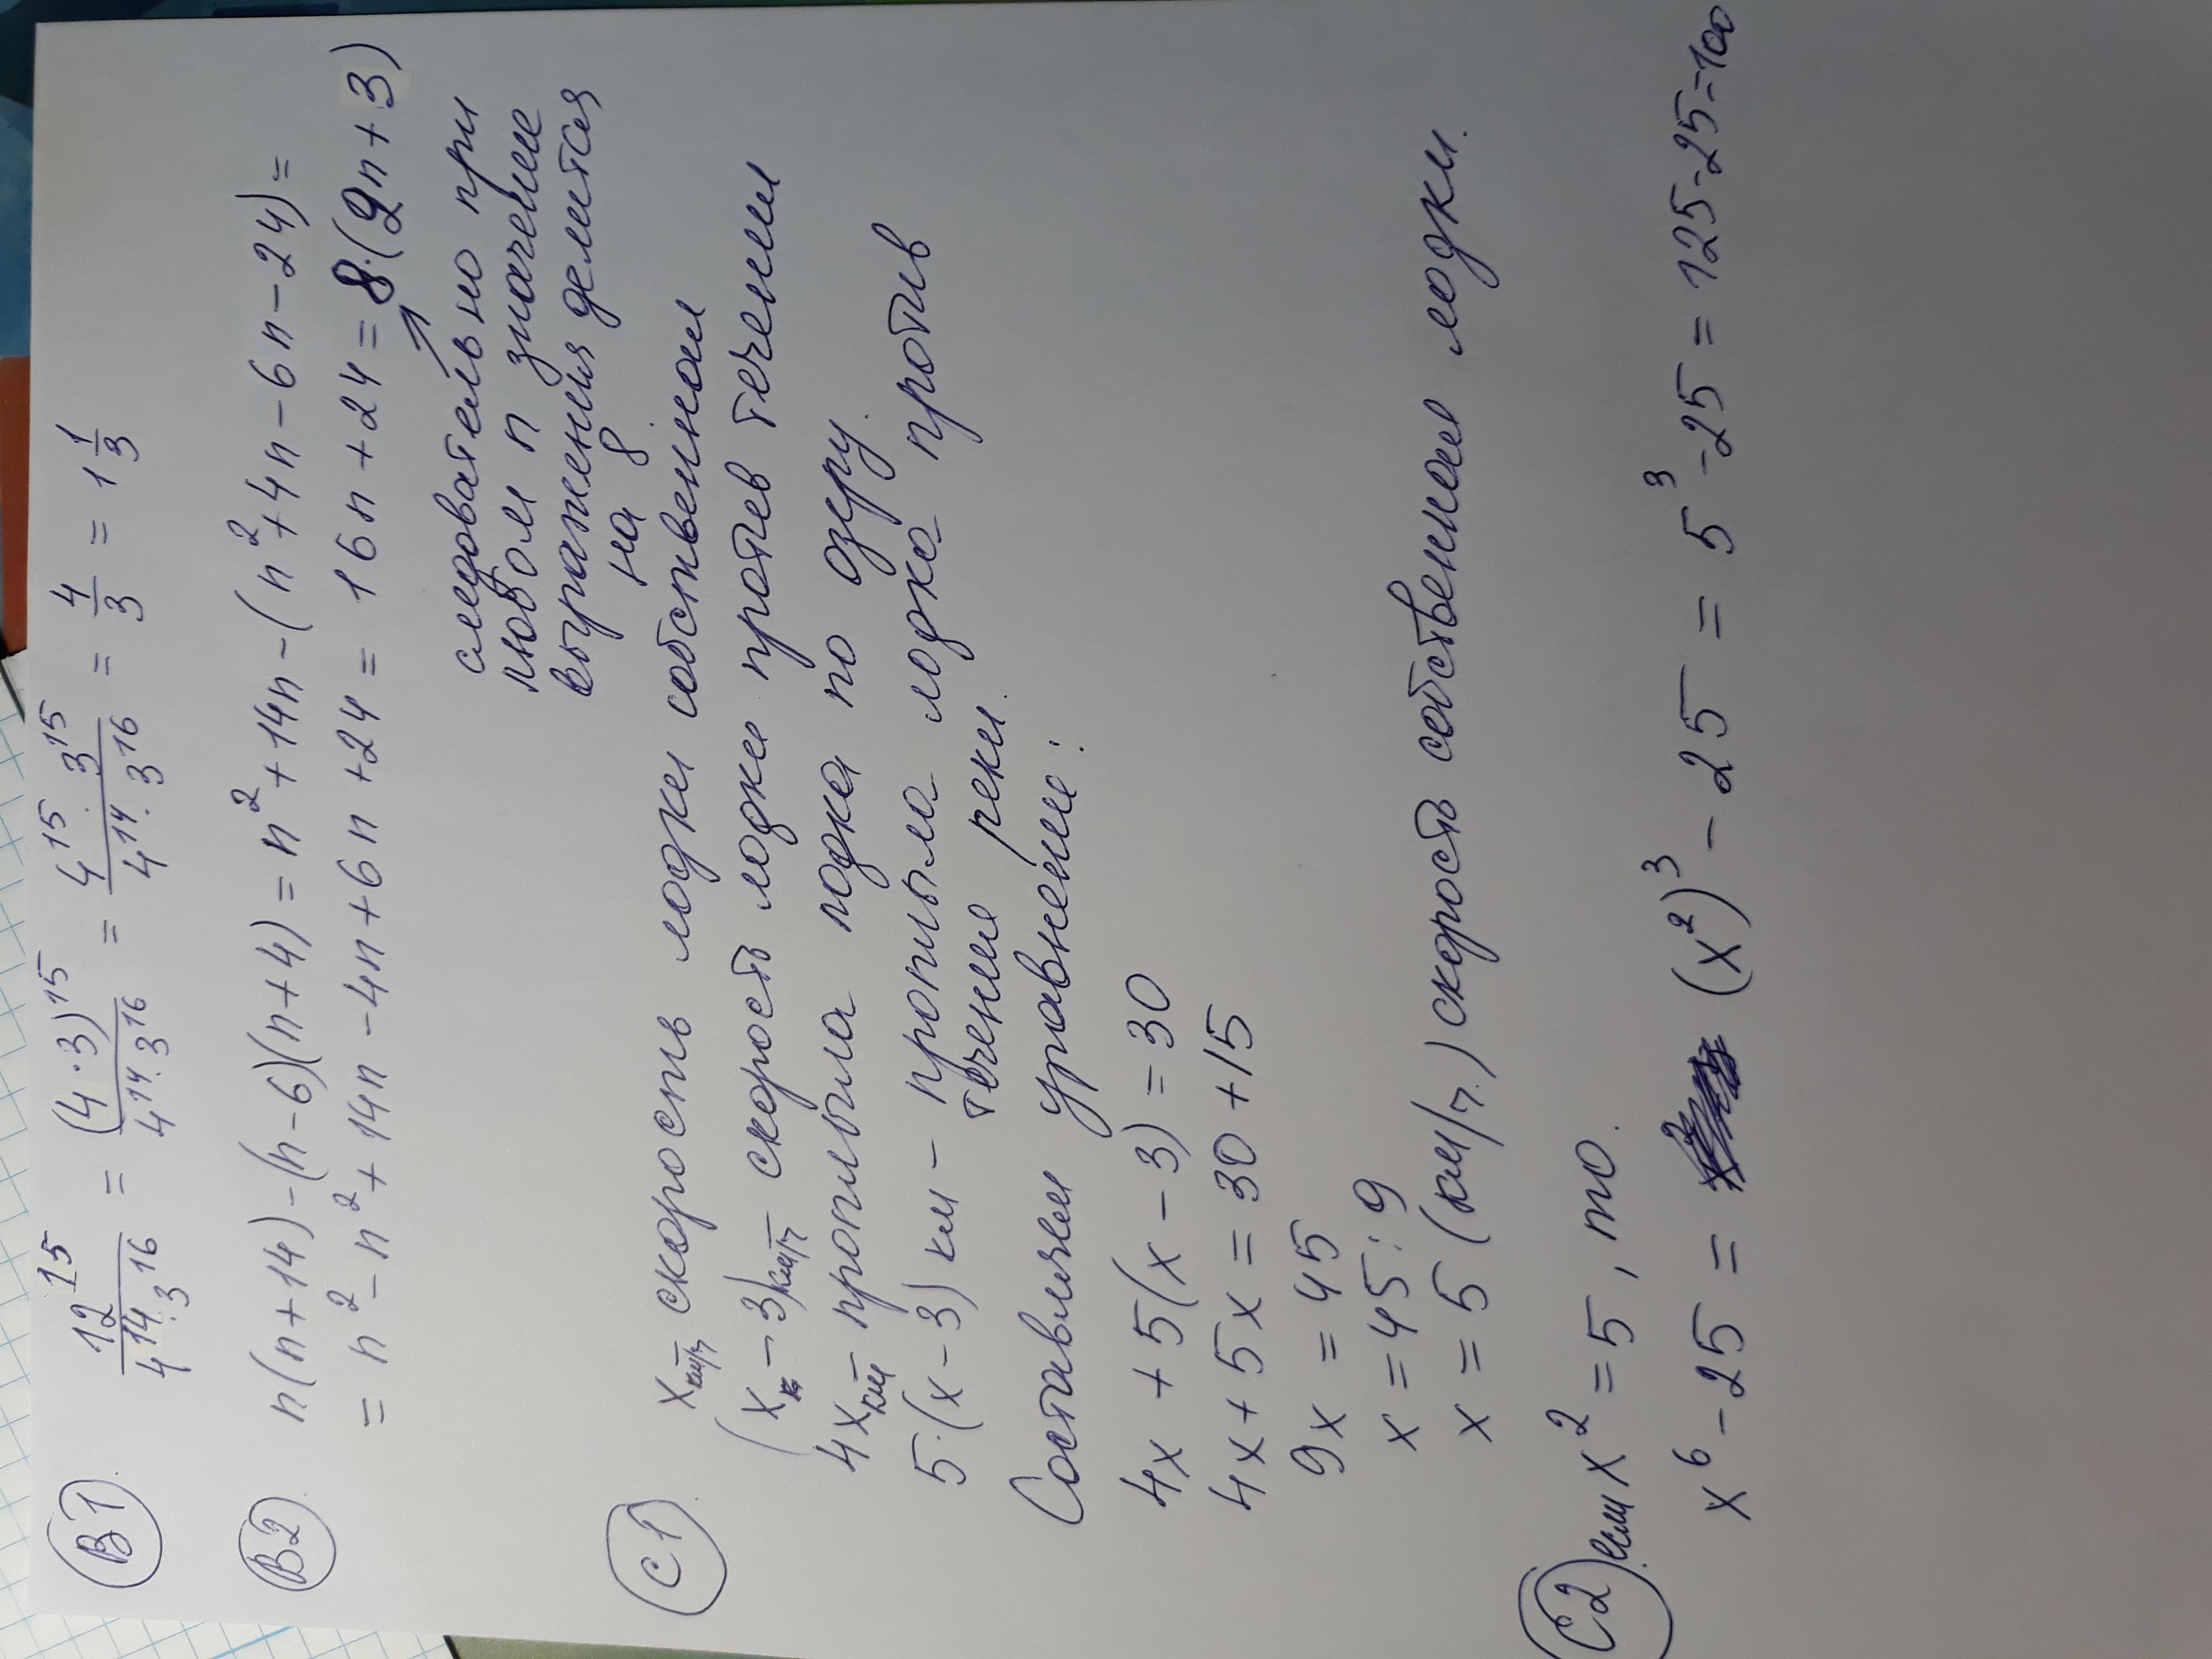 В1 12^15/(4^14·3^16) = (4·3)^15/(4^14·3^16) = (4^15·3^15)/(4^14·3^16) = 4/3 = 1 1/3
В2 n(n+14)-(n-6)(n+4) = n²+14n-(n²+4n-6n-24) =
= n²-n²+14n-4n+6n+24 = 16n+24 = 8·(2n+3)
следовательно при
любом n значение
выражения делится
на 8
С1 х км/ч скорость лодки собственная
(х-3) км/ч скорость лодки протев течения
4х км - проплыла лодка по озеру.
5·(х-3) км - проплыла лодка против
течения реки.
Составлем уравнение:
4х + 5(х-3) = 30
4х + 5х = 30 + 15
9х = 45
х = 45 : 9
х = 5 (км/ч.) скорость собственная лодки.
С2 если х² = 5, то.
х⁶-25 = (х²)³-25 = 5³-25 = 125-25=100